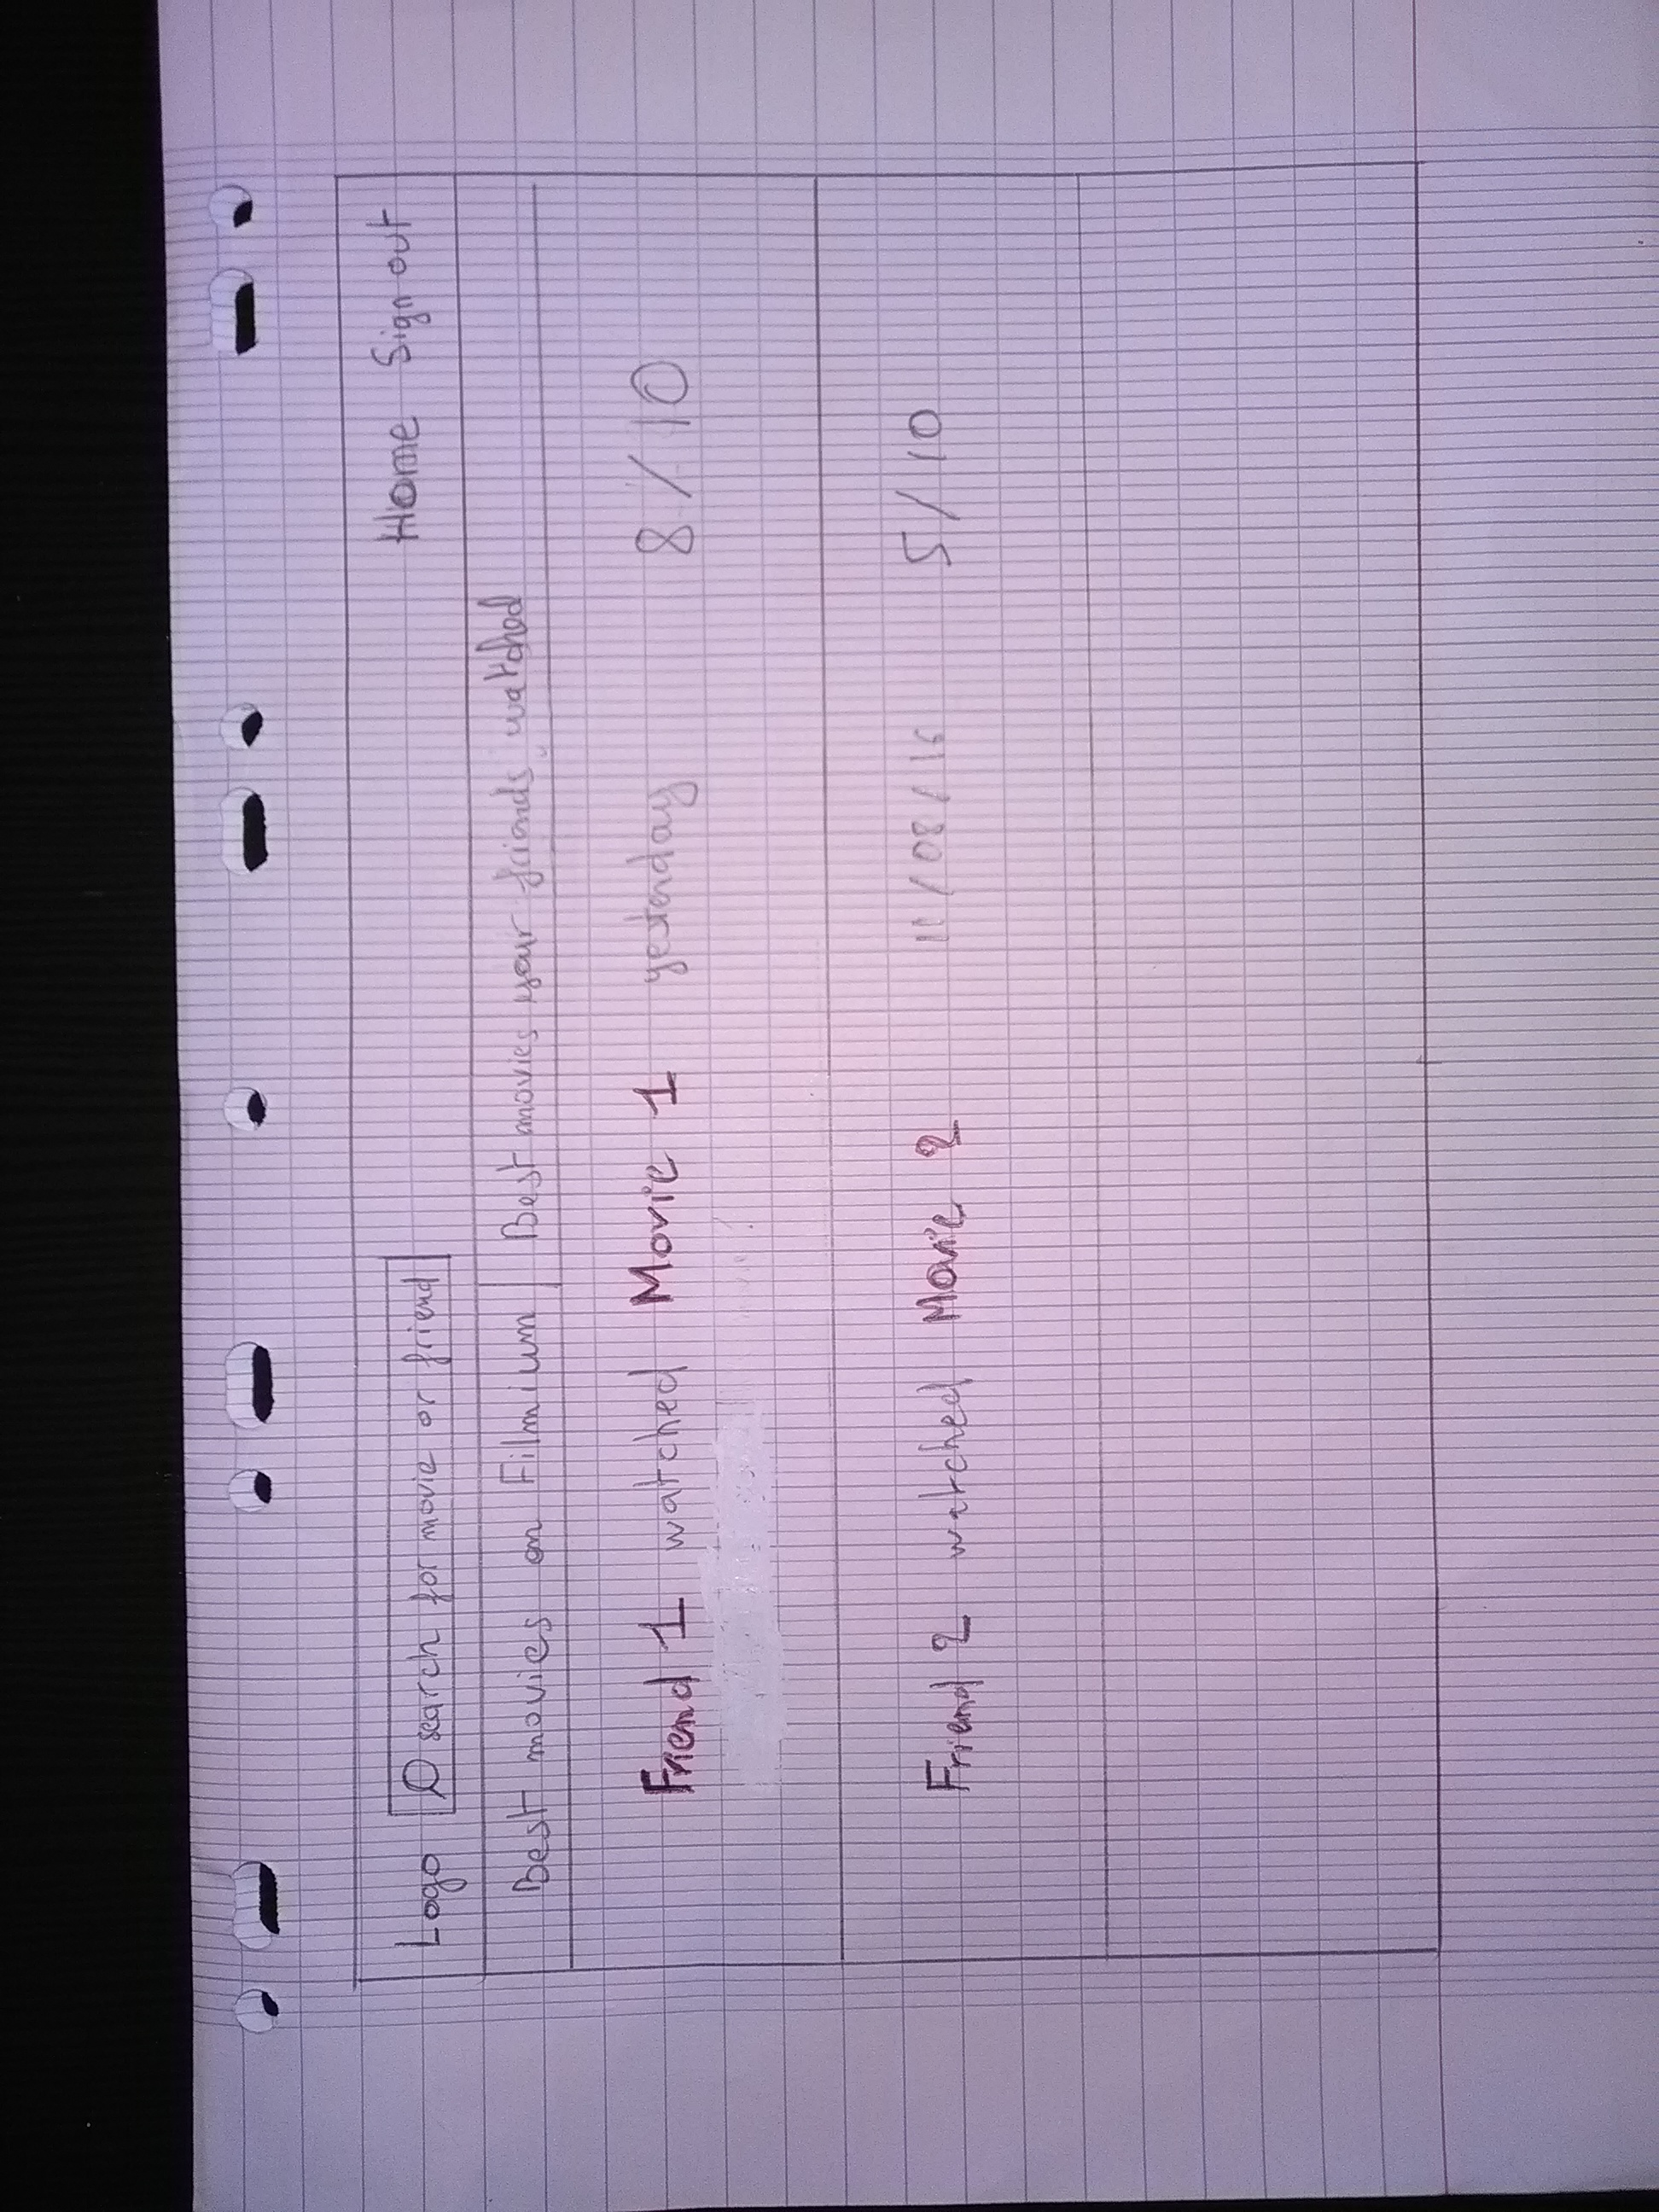 Logo search for movie or friend Home Sign out
Best movies on Filmium Best movies your friends watched
Friend 1 watched Movie 1 yesterday 8/10
Friend 2 watched Movie 2 11/08/16 5/10